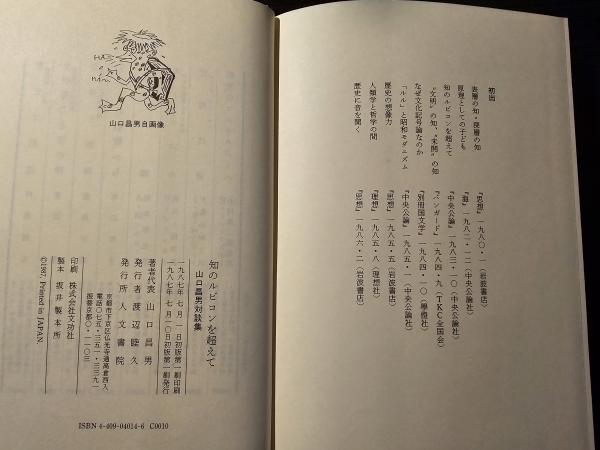 初出
表層の知・深層の知　『思想』一九八〇・一一（岩波書店）
原理としての子ども　『海』一九八二・一二（中央公論社）
知のルビコンを超えて　『中央公論』一九八三・一〇（中央公論社）
“文明”の知、“未開”の知　『バンガード』一九八四・九（TKC全国会）
なぜ文化記号論なのか　『別冊国文学』一九八四・一〇（學燈社）
「ルル」と昭和モダニズム　『中央公論』一九八五・一（中央公論社）
歴史の想像力　『思想』一九八五・五（岩波書店）
人類学と哲学の間　『理想』一九八五・八（理想社）
歴史に音を聞く　『思想』一九八六・二（岩波書店）
山口昌男自画像
知のルビコンを超えて
山口昌男対談集
一九八七年七月一日初版第一刷印刷
一九八七年七月一〇日初版第一刷発行
著者代表 山口昌男
発行者 渡辺睦久
発行所 人文書院
京都市下京区仏光寺通高倉西入
電話〇七五・三五一・三三九一
振替京都〇・一一〇三
印刷 株式会社文功社
製本 坂井製本所
©1987, Printed in JAPAN.
ISBN 4-409-04014-6 C0010